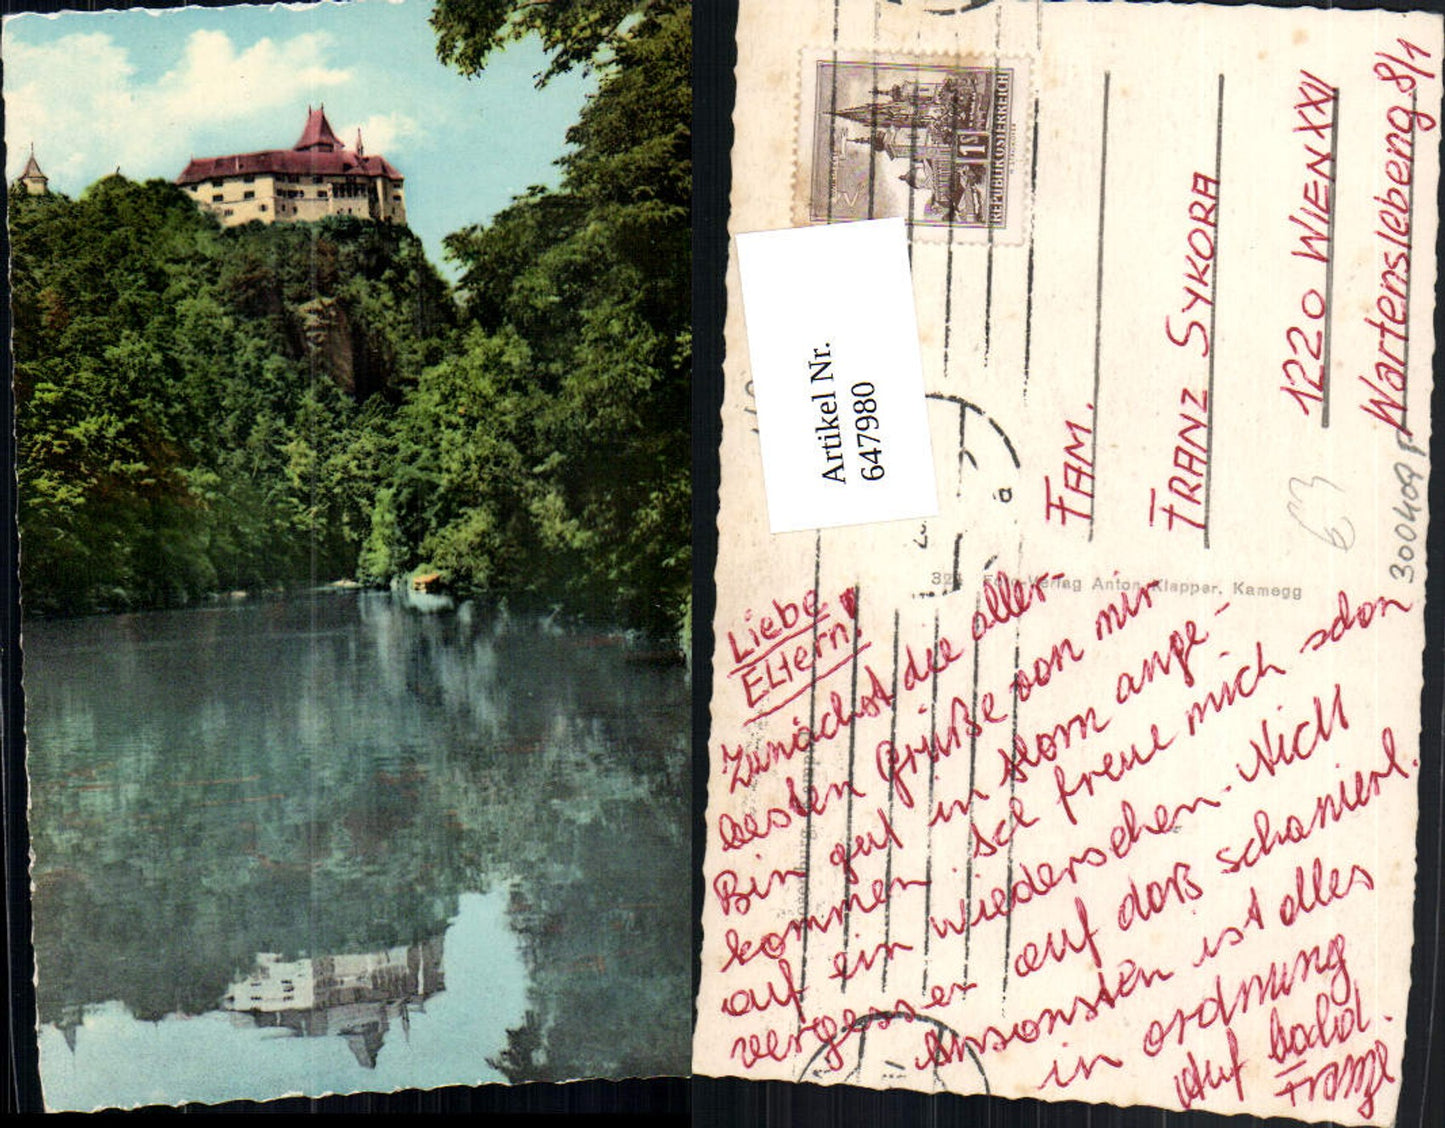 REPUBLIK ÖSTERREICH
1
Artikel Nr.
647980
FAM.
FRANZ SYKORA
1220 WIEN XXII
Wartenslebeng. 8/1
63
300409
Foto-Verlag Anton Klapper, Kamegg
Liebe
Eltern!
Zunächst die aller-
besten Grüße von mir
Bin gut in Horn ange-
kommen Ich freue mich schon
auf ein wiedersehen. Nicht
vergessen auf das schanierl.
Ansonsten ist alles
in ordnung
Auf bald.
Franz